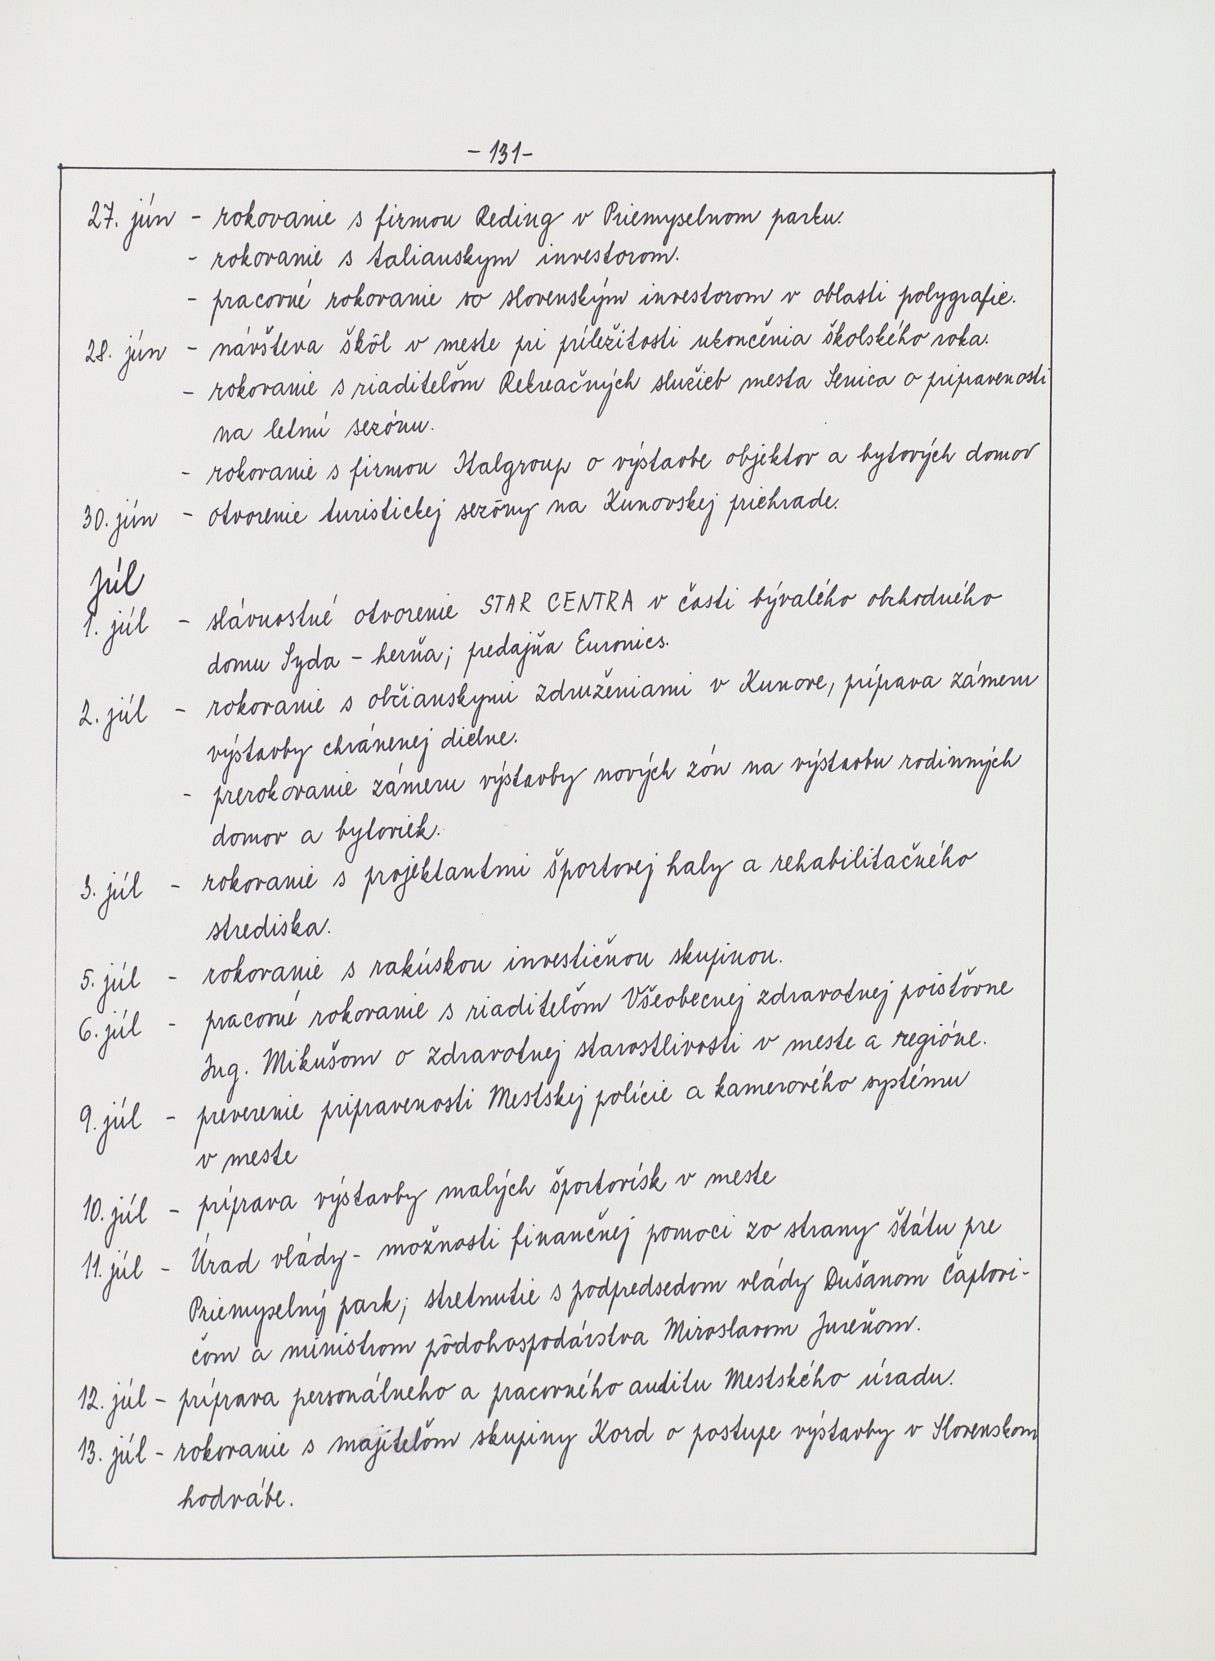 - 131 -
27. jún - rokovanie s firmou Reding v Priemyselnom parku.
- rokovanie s talianskym investorom.
- pracovné rokovanie so slovenským investorom v oblasti polygrafie.
28. jún - návšteva škôl v meste pri príležitosti ukončenia školského roka.
- rokovanie s riaditeľom Rekreačných služieb mesta Senica o pripravenosti
na letnú sezónu.
- rokovanie s firmou Italgroup o výstavbe objektov a bytových domov
30. jún - otvorenie turistickej sezóny na Kunovskej priehrade.
Júl
1. júl - slávnostné otvorenie STAR CENTRA v časti bývalého obchodného
domu Syda - herňa; predajňa Euronics.
2. júl - rokovanie s občianskymi združeniami v Kunove, príprava zámeru
výstavby chránenej dielne.
- prerokovanie zámeru výstavby nových zón na výstavbu rodinných
domov a bytoviek.
3. júl - rokovanie s projektantmi športovej haly a rehabilitačného
strediska.
5. júl - rokovanie s rakúskou investičnou skupinou.
6. júl - pracovné rokovanie s riaditeľom Všeobecnej zdravotnej poisťovne
Ing. Mikušom o zdravotnej starostlivosti v meste a regióne.
9. júl - preverenie pripravenosti Mestskej polície a kamerového systému
v meste
10. júl - príprava výstavby malých športovísk v meste
11. júl - Úrad vlády - možnosti finančnej pomoci zo strany štátu pre
Priemyselný park; stretnutie s podpredsedom vlády Dušanom Čaplovi-
čom a ministrom pôdohospodárstva Miroslavom Jureňom.
12. júl - príprava personálneho a pracovného auditu Mestského úradu.
13. júl - rokovanie s majiteľom skupiny Kord o postupe výstavby v Slovenskom
hodvábe.